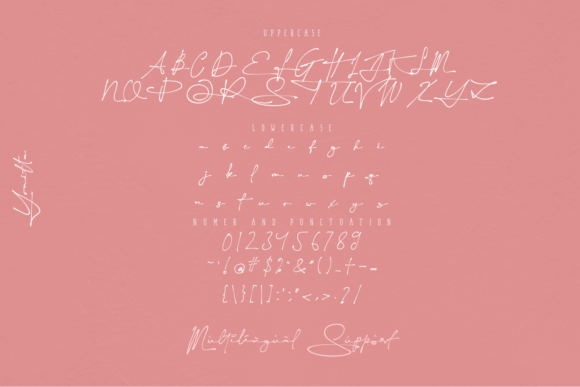 UPPERCASE
A B C D E F G H I J K L M
N O P Q R S T U V W X Y Z
LOWERCASE
a b c d e f g h i
j k l m n o p q
r s t u v w x y z
NUMER AND PUNCTUATION
0123456789
~'!@#$%^&*()_+-=
{\}[|]:;"<,>.?/
Multilingual Support